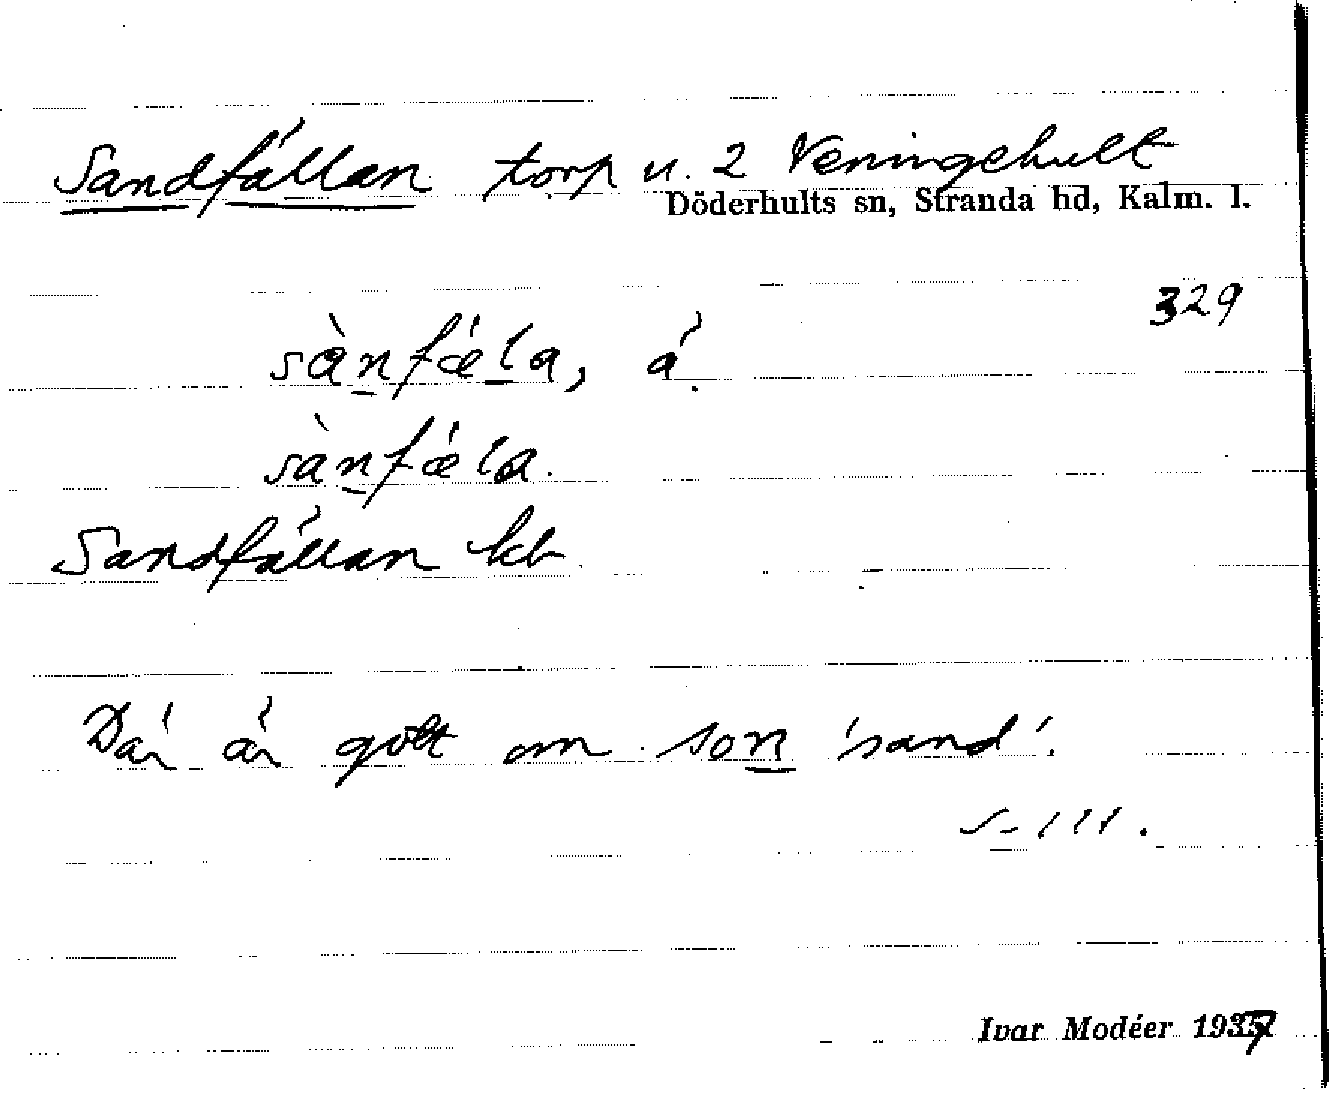 Sandfällan torp u. 2 Veningehult
Döderhults sn, Stranda hd, Kalm. l.
329
sànfǽla, á
sànfǽla.
Sandfällan kb
Där är gott om son 'sand'.
Ivar Modéer 1937